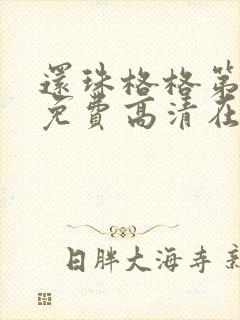 還珠格格第
免費高清在
日胖大海寺